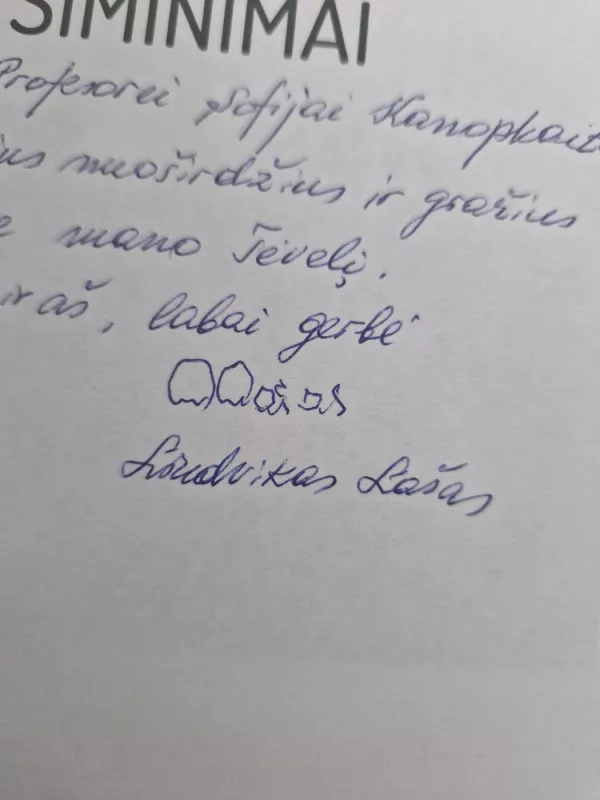 SIMINIMAI
Profesorei Sofijai Kanopkait
ius nuoširdžius ir gražius
e mano Tėvelį.
ir aš, labai gerbė
Liudvikas Lašas